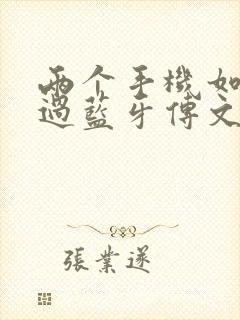 兩个手機如
過藍牙傳文
張業遂